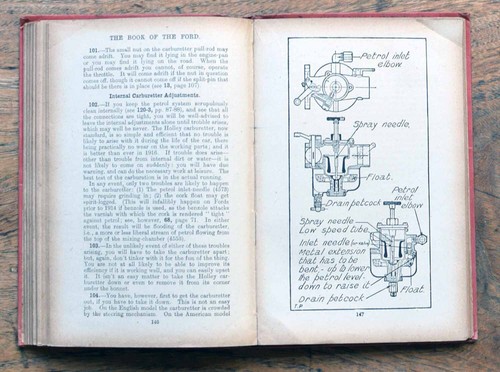 THE BOOK OF THE FORD.
101.—The small nut on the carburetter pull-rod may
come adrift. You may find it lying in the engine-pan
or you may find it lying on the road. When the
pull-rod comes adrift you cannot, of course, operate
the throttle. It will come adrift if the nut in question
comes off, though it cannot come off if the split-pin that
should be there is in place (see 12, page 107).
Internal Carburetter Adjustments.
102.—If you keep the petrol system scrupulously
clean internally (see 120-3, pp. 87-90), and see that all
the connections are tight, you will be well-advised to
leave the internal adjustments alone until trouble arises,
which may well be never. The Holley carburetter, now
standard, is so simple and efficient that no trouble is
likely to arise with it during the life of the car, there
being practically no wear on the working parts; and it
is better than ever in 1916. If trouble does arise—
other than trouble from internal dirt or water—it is
not likely to come on suddenly; you will have due
warning, and can do the necessary work at leisure. The
best test of the carburetter is in the actual running.
In any event, only two troubles are likely to happen
to the carburetter: (1) The petrol inlet-needle (4573)
may require grinding in; (2) the cork float may get
spirit-logged. (This will infallibly happen on Fords
prior to 1914 if benzole is used, as the benzole attacks
the varnish with which the cork is rendered "tight"
against petrol; see, however, 68, page 71. In either
event, the result will be flooding of the carburetter,
i.e., a more or less liberal stream of petrol flowing from
the top of the mixing-chamber (4550).
103.—In the unlikely event of either of these troubles
arising, you will have to take the carburetter apart;
but, again, don't tinker with it for the fun of the thing.
You are not at all likely to be able to improve its
efficiency if it is working well, and you can easily upset
it. It isn't an easy matter to take the Holley car-
buretter down or even to remove it from its corner
under the bonnet.
104.—You have, however, first to get the carburetter
out, if you have to take it down. This is not an easy
job. On the English model the carburetter is crowded
by the steering mechanism. On the American model
146
Petrol inlet
elbow
Spray needle.
Float.
Drain petcock
Petrol
inlet
elbow
Spray needle
Low speed tube.
Inlet needle
Metal extension
that has to be
bent - up to lower
the petrol level
down to raise it
Drain petcock
Float.
147